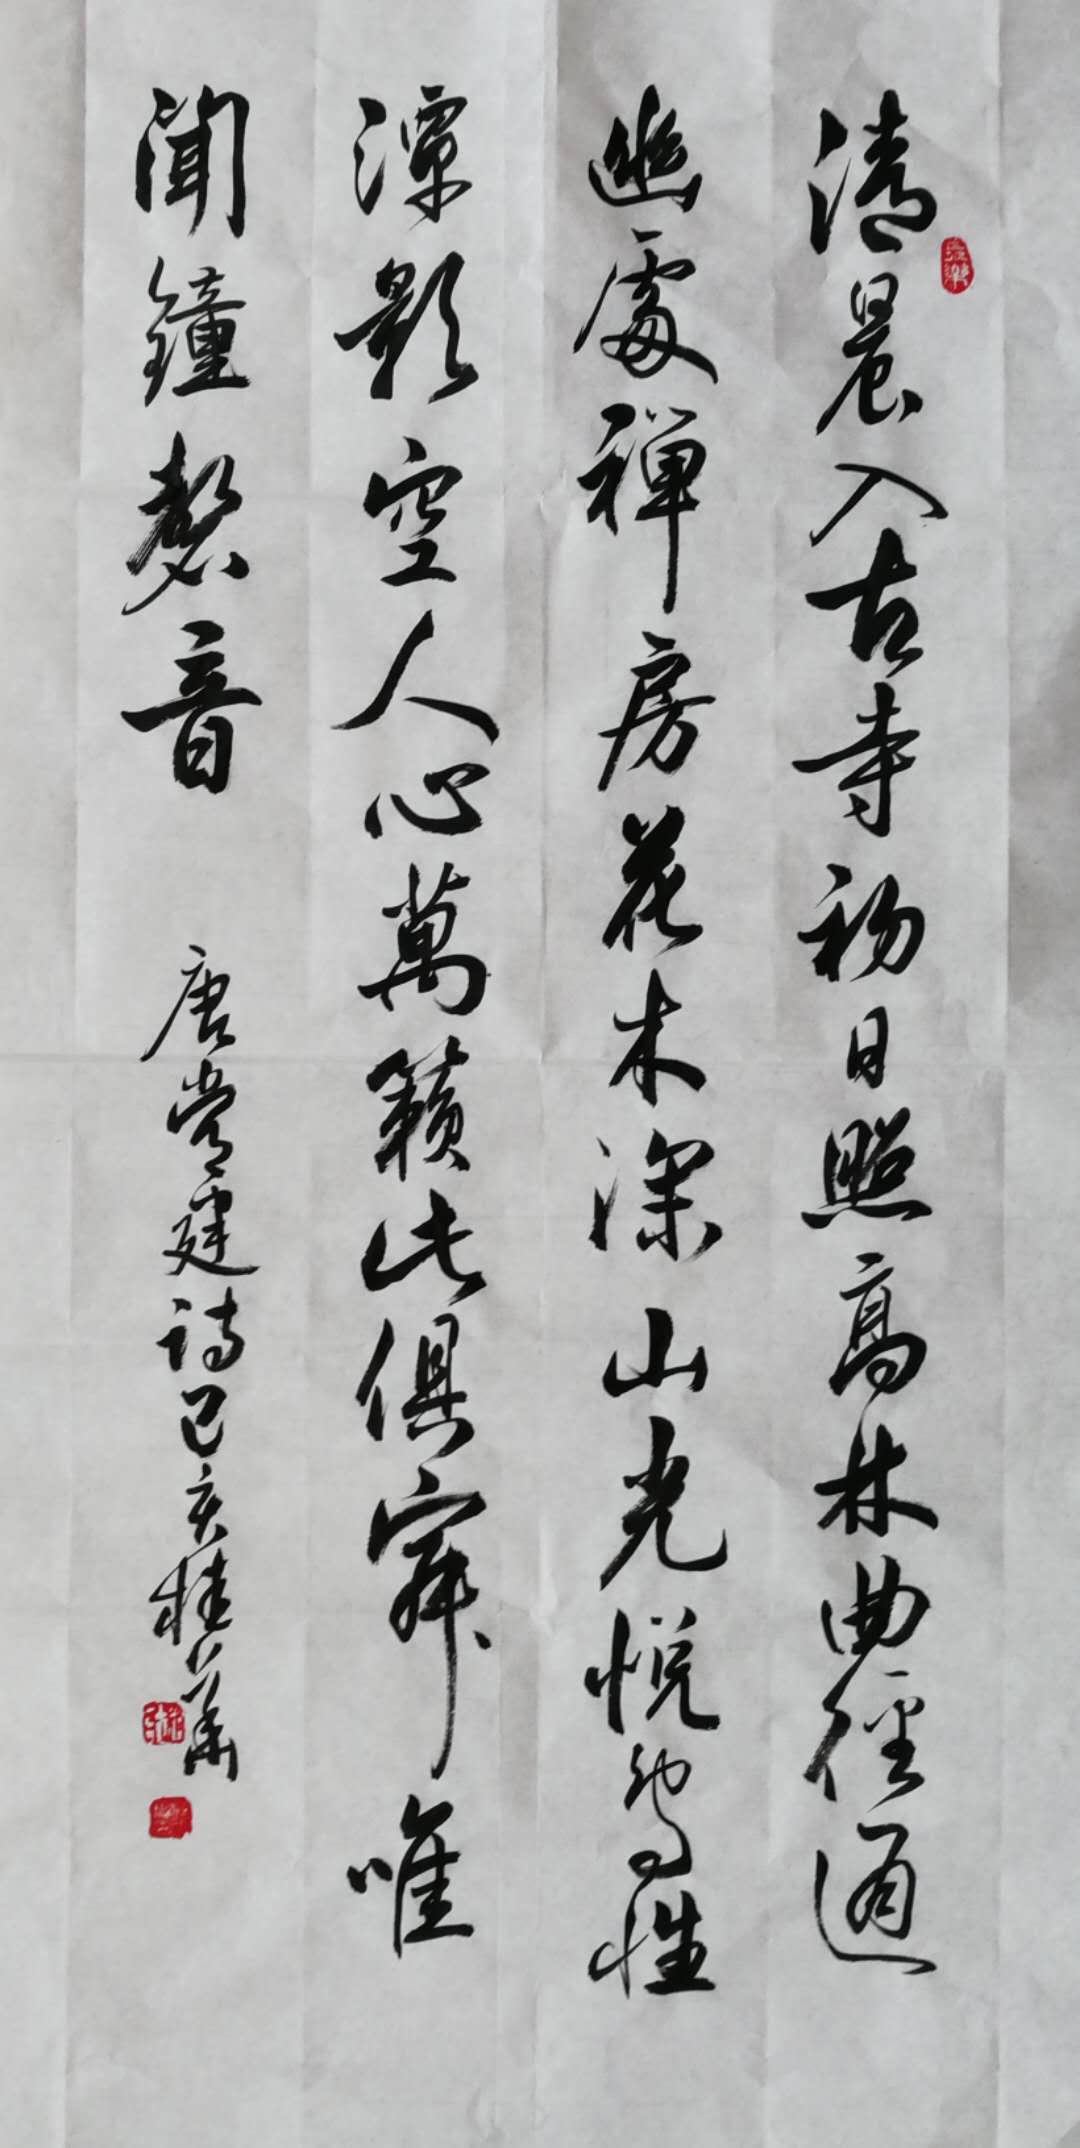 清晨入古寺初日照高林曲徑通
幽處禪房花木深山光悅鳥性
潭影空人心萬籟此俱寂唯
聞鐘磬音
唐常建詩己亥桂萬